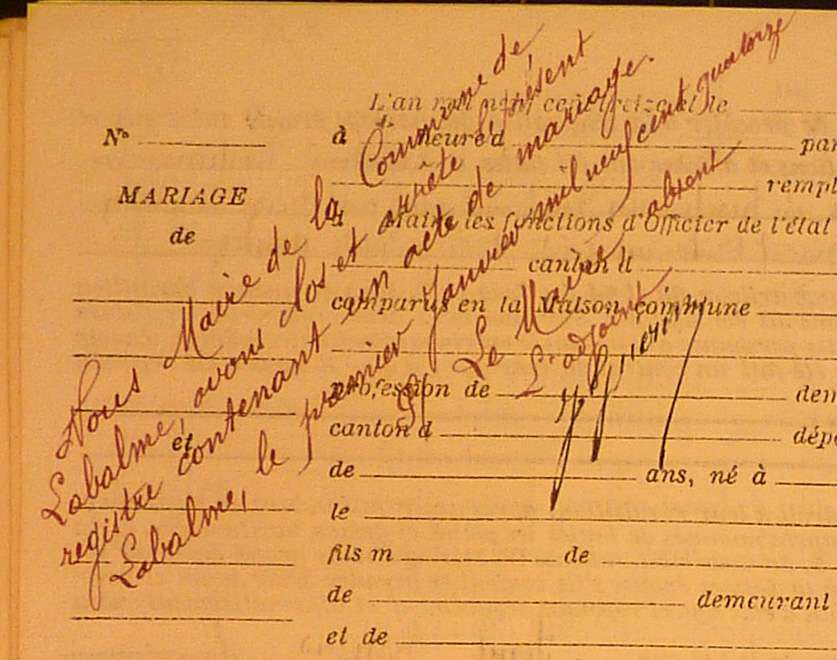 L'an mil neuf cent treize et le
N° à heure d par
MARIAGE rempl
de d Maire les fonctions d'Officier de l'état
canton d
comparus en la Maison commune
profession de dem
et canton d dépa
de ans, né à
le
fils m de
de demeurant
et de
Nous Maire de la Commune de
Labalme, avons clos et arrêté le présent
registre contenant un acte de mariage.
Labalme, le premier Janvier mil neuf cent quatorze
P Le Maire absent
L'adjoint